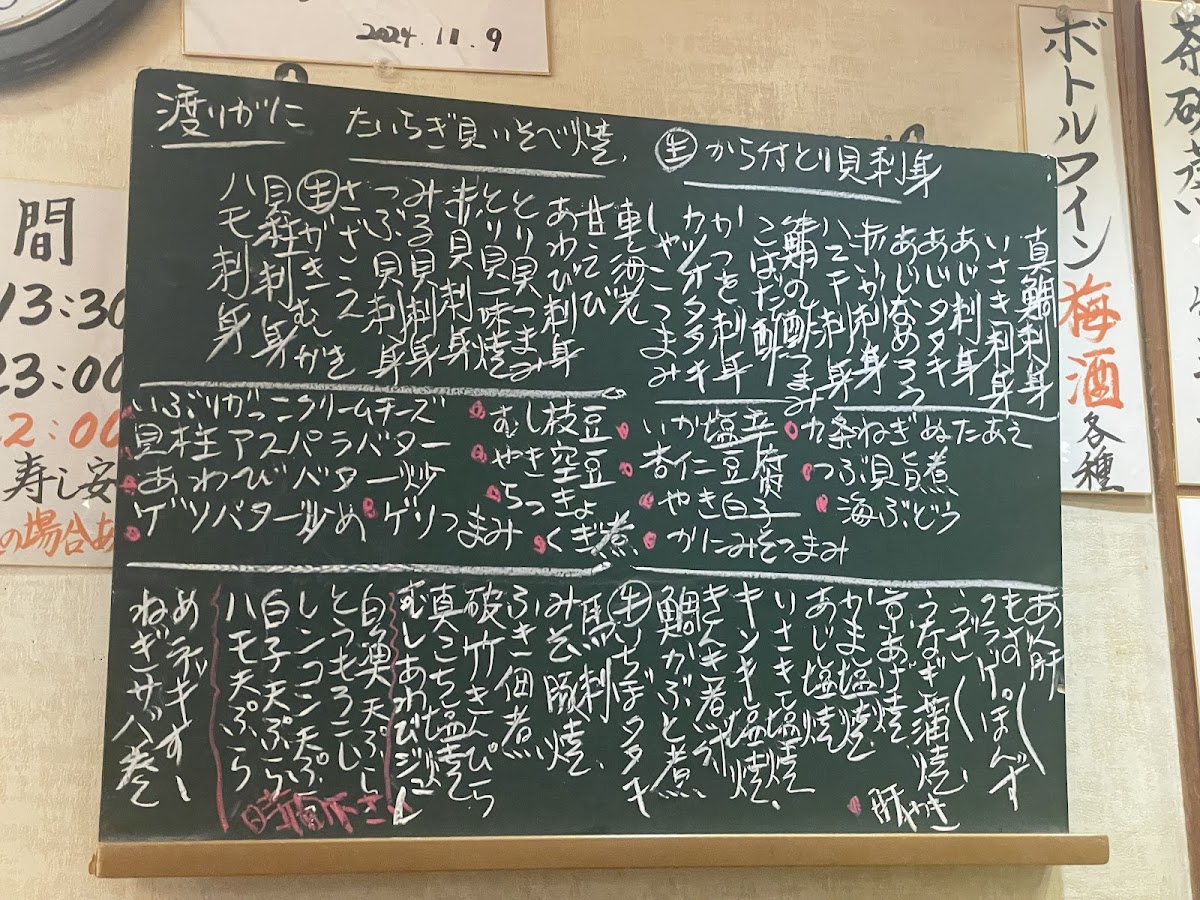 2024.11.9
渡りがに
たいらぎ貝いそべ焼
生から付とり貝刺身
真鯛刺身
いさき刺身
あじ刺身
あじタタキ
あじなめろう
赤いか刺身
八て干刺身
鯛の酒つまみ
こはだ酢
かつを刺身
カツオタタキ
しゃこつまみ
車海老
甘えび
あわび刺身
とり貝つまみ
とり貝一味焼
赤貝刺身
みる貝刺身
つぶ貝刺身
さざえ
生がきむがき
目鯵刺身
ハモ刺身
いぶりがっこクリームチーズ
貝柱アスパラバター
あわびバター炒
ゲソバター炒め
ゲソつまみ
むし枝豆
やき空豆
らっきょ
くぎ煮
いか塩辛
杏仁豆腐
やき白子
かにみそつまみ
九条ねぎぬたあえ
つぶ貝旨煮
海ぶどう
あん肝
もずく
クラゲぽんず
うざく
うなぎ蒲焼
京あげ焼
かま塩焼
あじ塩焼
いさき塩焼
キンキ塩焼
きんき煮付
鯛かぶと煮
生いちぼタタキ
馬刺
みそ豚焼
ふき佃煮
破竹きんぴら
真こち塩焼
むしあわびジュレ
白魚天ぷら
とうもろこし
レンコン天ぷら
白子天ぷら
ハモ天ぷら
めネギすし
ねぎサバ巻
肝やき
時価下さい
ボトルワイン
梅酒
各種
間
13:30
23:00
寿し安
の場合あ